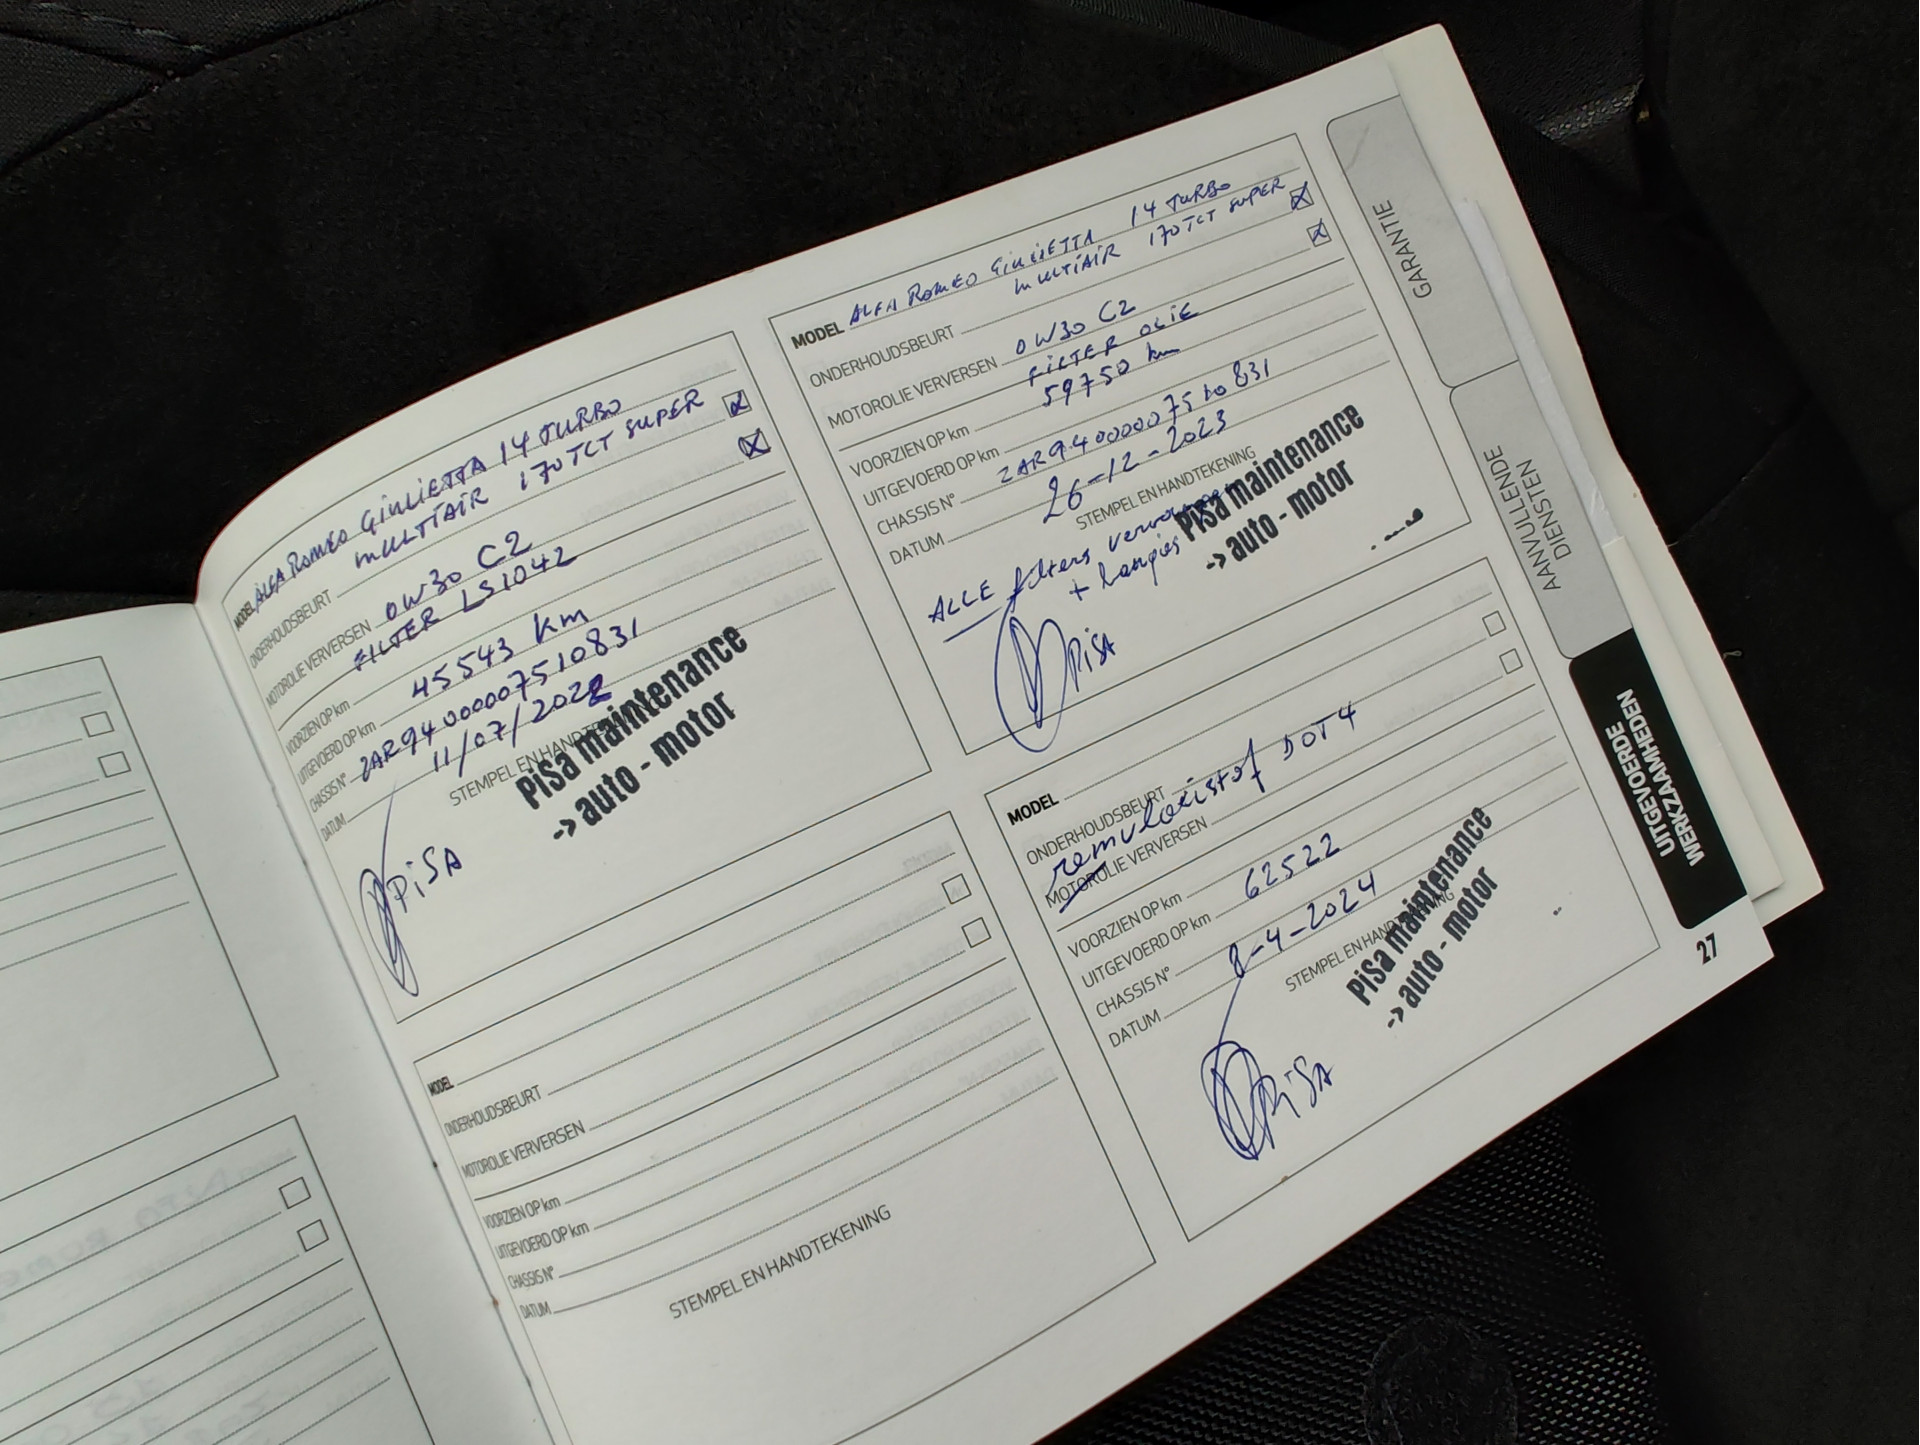 MODEL ALFA ROMEO GIULIETTA 14 TURBO
MULTIAIR 170 TCT SUPER
ONDERHOUDSBEURT
MOTOROLIE VERVERSEN 0W30 C2
FILTER LS1042
VOORZIEN OP km
UITGEVOERD OP km 45543 km
CHASSIS N° ZAR94000007510831
DATUM 11/07/2022
STEMPEL EN HANDTEKENING
PiSa maintenance
-> auto - motor
PiSA
MODEL ALFA ROMEO GIULIETTA 14 TURBO
MULTIAIR 170 TCT SUPER
ONDERHOUDSBEURT
MOTOROLIE VERVERSEN 0W30 C2
FILTER OLIE
VOORZIEN OP km 59750 km
UITGEVOERD OP km
CHASSIS N° ZAR94000007510831
DATUM 26-12-2023
STEMPEL EN HANDTEKENING
PiSa maintenance
-> auto - motor
ALLE filters
+
PiSA
MODEL
ONDERHOUDSBEURT
MOTOROLIE VERVERSEN
VOORZIEN OP km
UITGEVOERD OP km
CHASSIS N°
DATUM
STEMPEL EN HANDTEKENING
MODEL
ONDERHOUDSBEURT
remvloeistof DOT4
MOTOROLIE VERVERSEN
VOORZIEN OP km
UITGEVOERD OP km 62522
CHASSIS N°
DATUM 8-4-2024
STEMPEL EN HANDTEKENING
PiSa maintenance
-> auto - motor
PiSA
GARANTIE
AANVULLENDE
DIENSTEN
UITGEVOERDE
WERKZAAMHEDEN
27